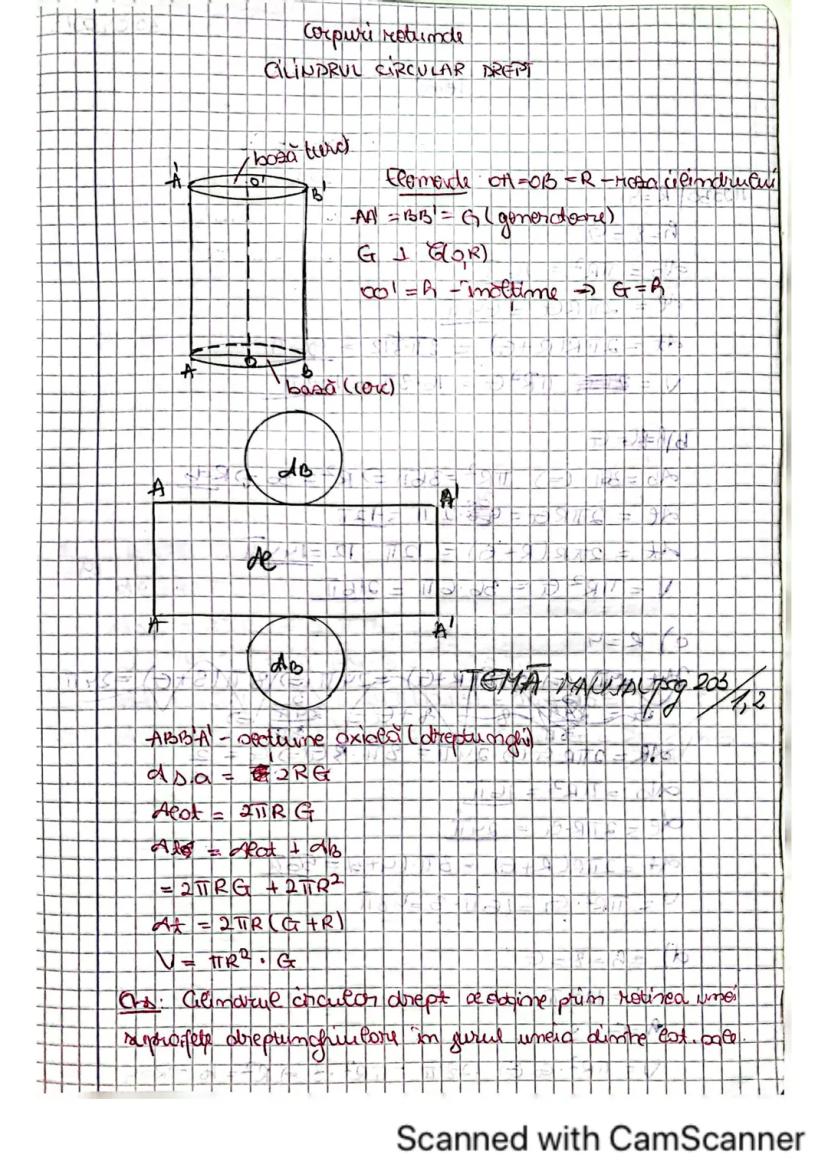 Corpuri rotunde
CILINDRUL CIRCULAR DREPT
bază (cerc)
A' O' B'
Elemente OA=OB=R - raza cilindrului
AA' = BB' = G (generatoare)
G ⊥ C(O,R)
OO' = h - înălțime ⇒ G = h
A O B
bază (cerc)
AB
A A'
Al
A A'
AB
TEMĂ MANUAL pg 203 / 1,2
ABB'A' - secțiune axială (dreptunghi)
A s.a = 2RG
Alat = 2πRG
At = Alat + AB
= 2πRG + 2πR²
At = 2πR(G+R)
V = πR² · G
Obs: Cilindrul circular drept se obține prin rotirea unei
suprafețe dreptunghiulare în jurul uneia dintre lat. sale.
Scanned with CamScanner